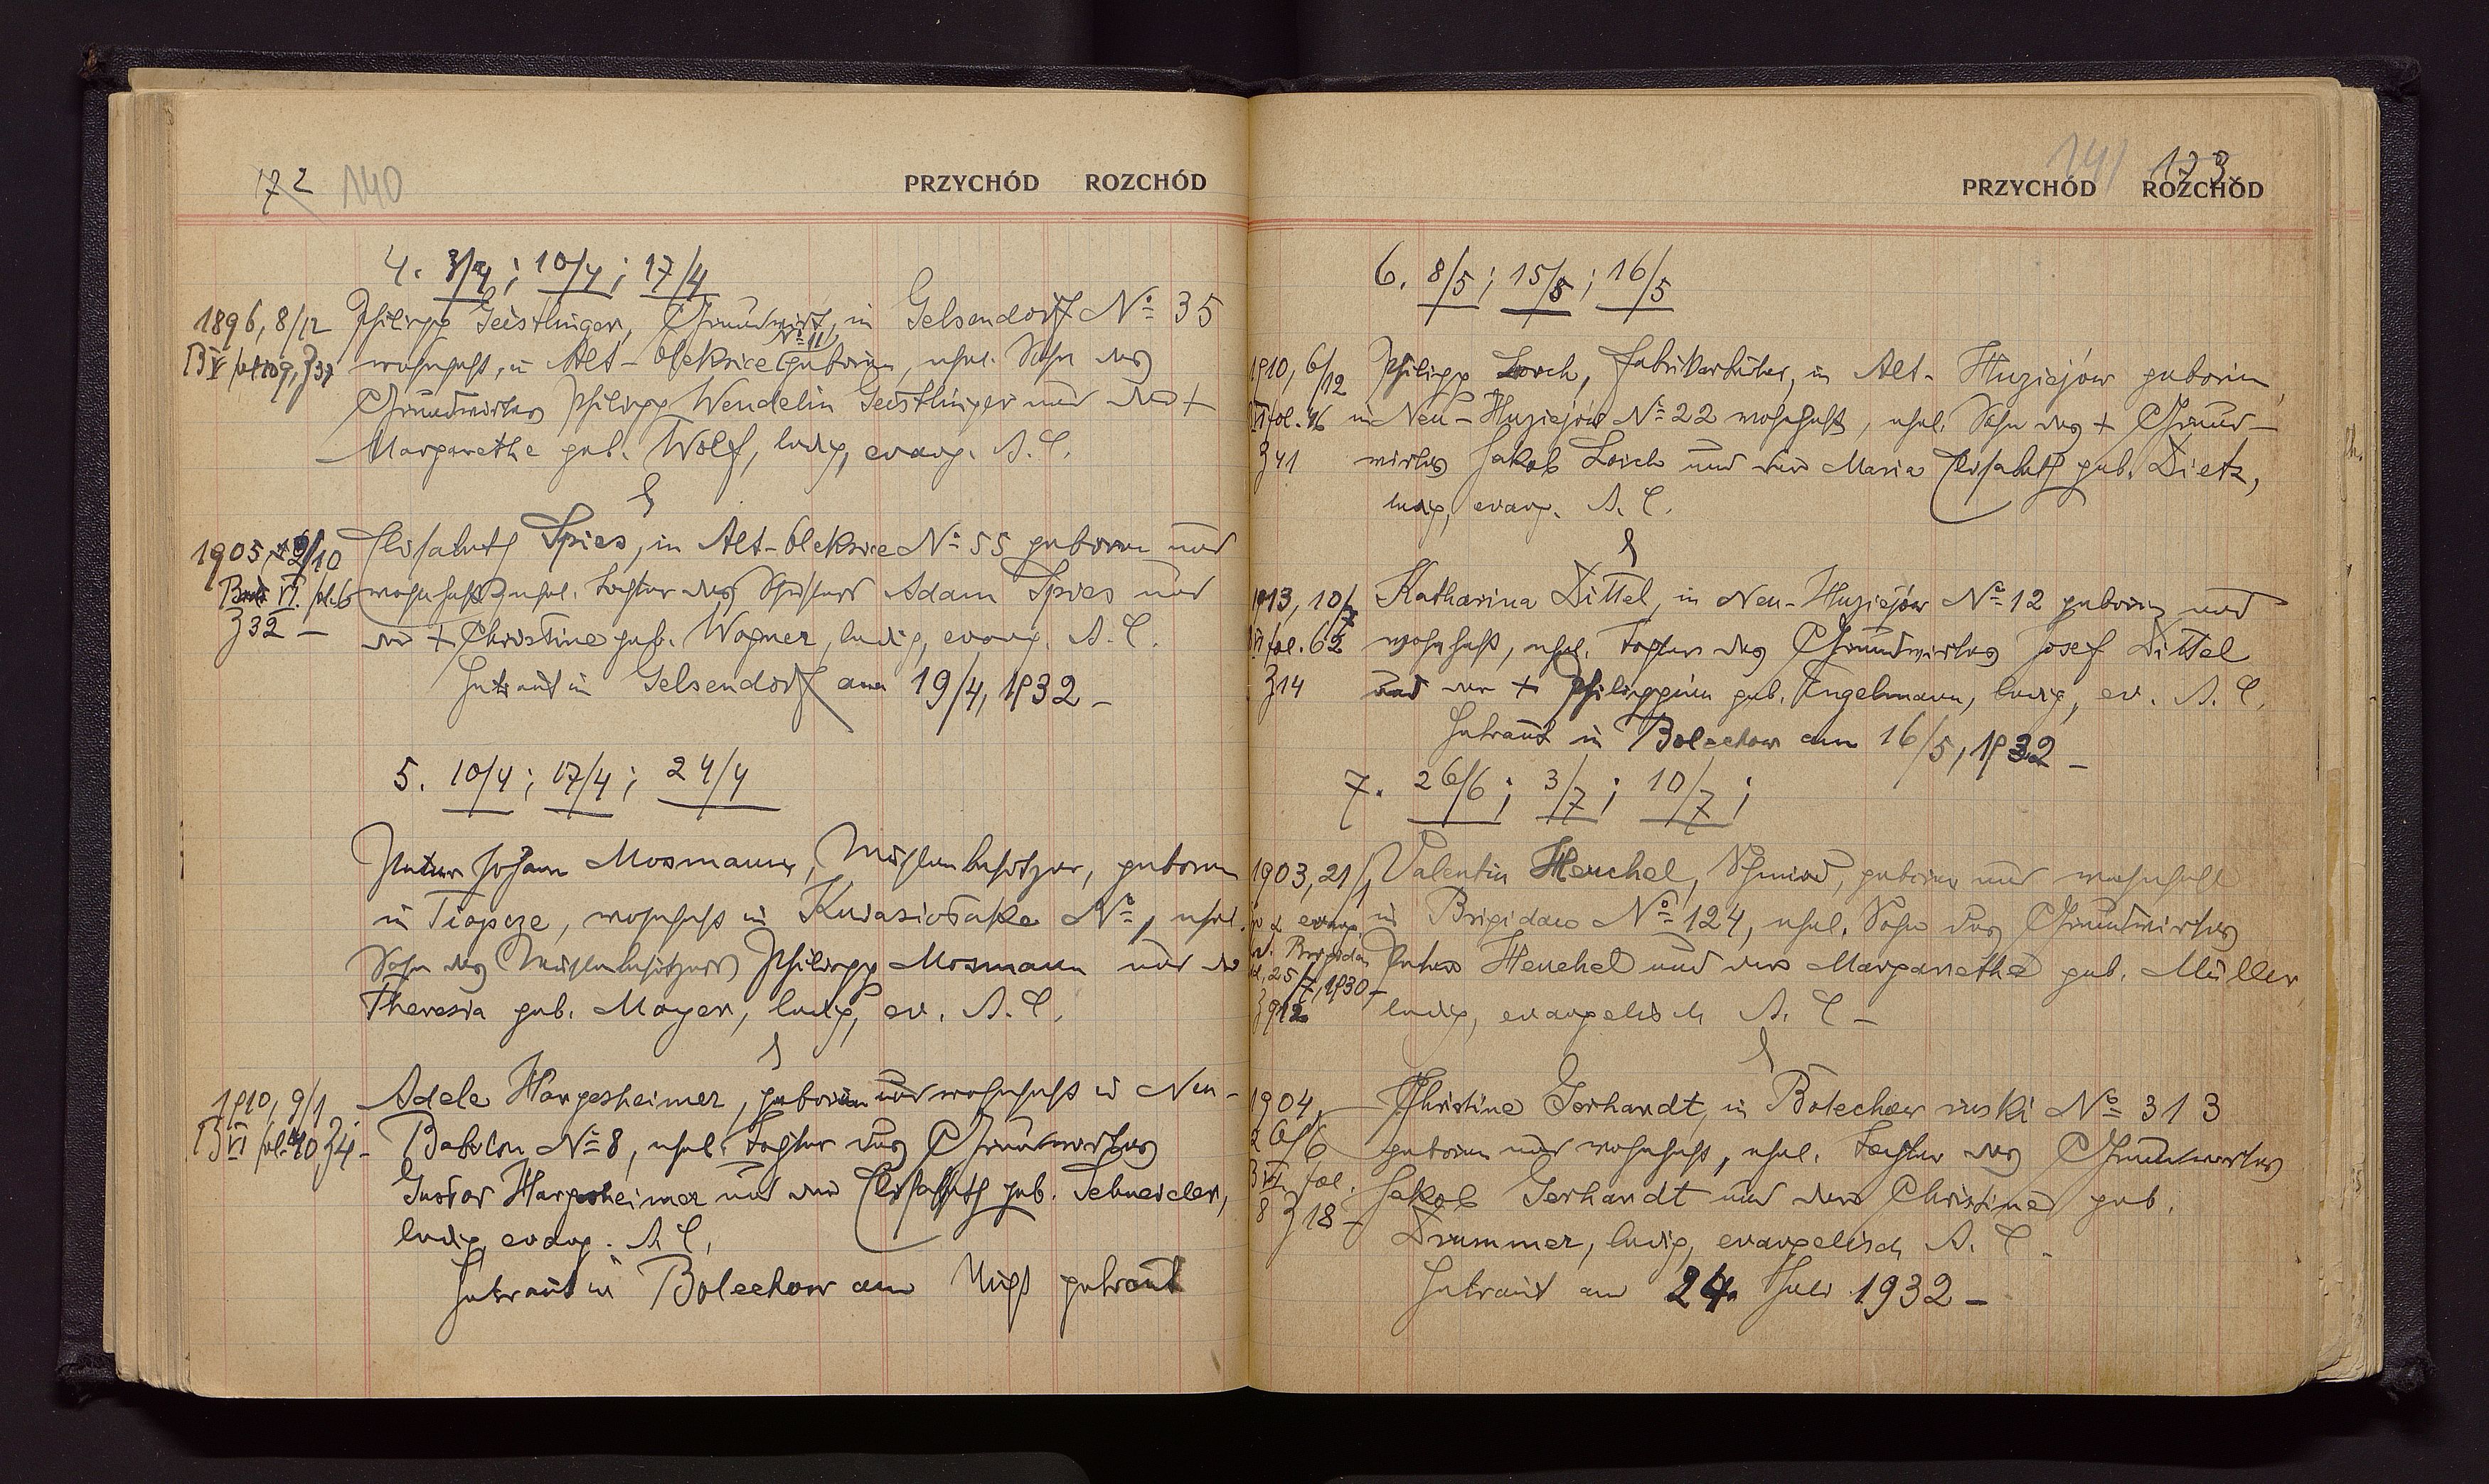 172 140
PRZYCHÓD ROZCHÓD
4. 3/4; 10/4; 17/4
1896, 8/12 Philipp Geistlinger, Grundwirt, in Gelsendorf No 35
No 11
B V fol 209, Z 37 wohnhaft, in Alt-Oleksice geboren, ehel. Sohn des
Grundwirtes Philipp Wendelin Geistlinger und der +
Margarethe geb. Wolf, ledig, evang. A. C.
&
1905, 29/10 Elisabeth Spies, in Alt-Oleksice No 55 geboren und
Band VI. fol. 6 wohnhaft, ehel. Tochter des Adam Spies und
Z 32 – der + Christine geb. Wagner, ledig, evang. A. C.
Getraut in Gelsendorf am 19/4, 1932 –
5. 10/4; 17/4; 24/4
Peter Johann Mosmann, Mühlenbesitzer, geboren
in Tiapcze, wohnhaft in No, ehel.
Sohn des Mühlenbesitzers Philipp Mosmann und der
Theresia geb. Mayer, ledig, ev. A. C.
&
1910, 9/1 Adele Hargesheimer, geboren und wohnhaft in Neu-
B VI fol. 40 Z 4 – Babilon No 8, ehel. Tochter des Grundwirtes
Gustav Hargesheimer und der Elisabeth geb. Schneider,
ledig, evang. A. C.
Getraut in Bolechow am Nicht getraut
141 173
PRZYCHÓD ROZCHÓD
6. 8/5; 15/5; 16/5
1910, 6/12 Philipp Lorch, Fabrikarbeiter, in Alt-Huziejów geboren,
VI fol. 46 in Neu-Huziejów No 22 wohnhaft, ehel. Sohn des + Grund-
Z 41 wirtes Jakob Lorch und der Maria Elisabeth geb. Dietz,
ledig, evang. A. C.
&
1913, 10/7 Katharina Dittel, in Neu-Huziejów No 12 geboren und
VI fol. 62 wohnhaft, ehel. Tochter des Grundwirtes Josef Dittel
Z 14 und der + Philippine geb. Engelmann, ledig, ev. A. C.
Getraut in Bolechow am 16/5, 1932 –
7. 26/6; 3/7; 10/7;
1903, 21/1 Valentin Henchel, Schmied, geboren und wohnhaft
evang. in Brigidau No 124, ehel. Sohn des Grundwirtes
Brigidau Peter Henchel und der Margarethe geb. Müller,
25/7, 1930 –
Z 912 ledig, evangelisch A. C. –
&
1904, Christine Gerhardt, in Bolechow ruski No 313
26/6 geboren und wohnhaft, ehel. Tochter des Grundwirtes
B VI fol. Jakob Gerhardt und der Christine geb.
8 Z 18 – Drummer, ledig, evangelisch A. C.
Getraut am 24. Juli 1932 –